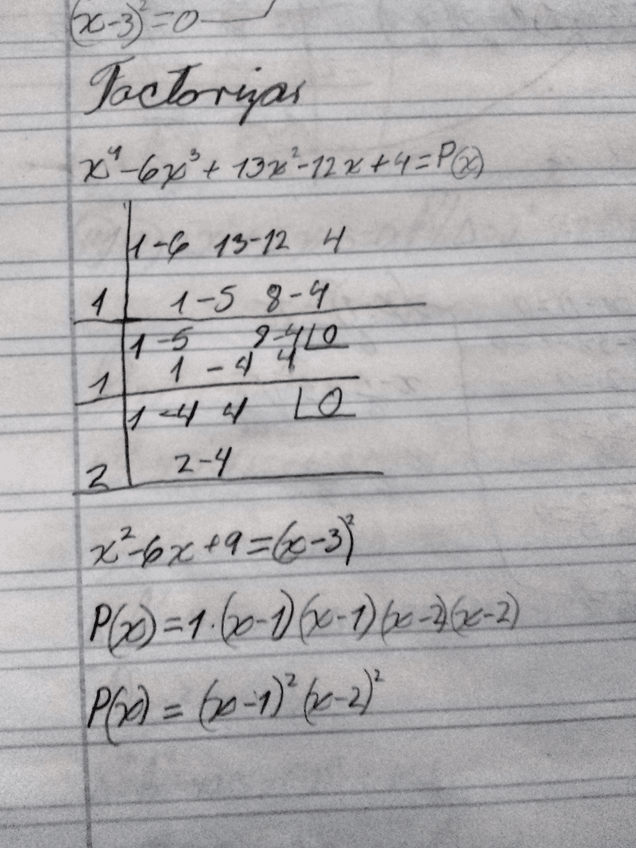 (x-3)²=0
Factorizar
x⁴-6x³+13x²-12x+4=P(x)
1-6 13-12 4
1 1-5 8-4
1-5 8-4 0
1 1-4 4
1-4 4 0
2 2-4
x²-6x+9=(x-3)²
P(x)=1·(x-1)(x-1)(x-2)(x-2)
P(x)=(x-1)²(x-2)²